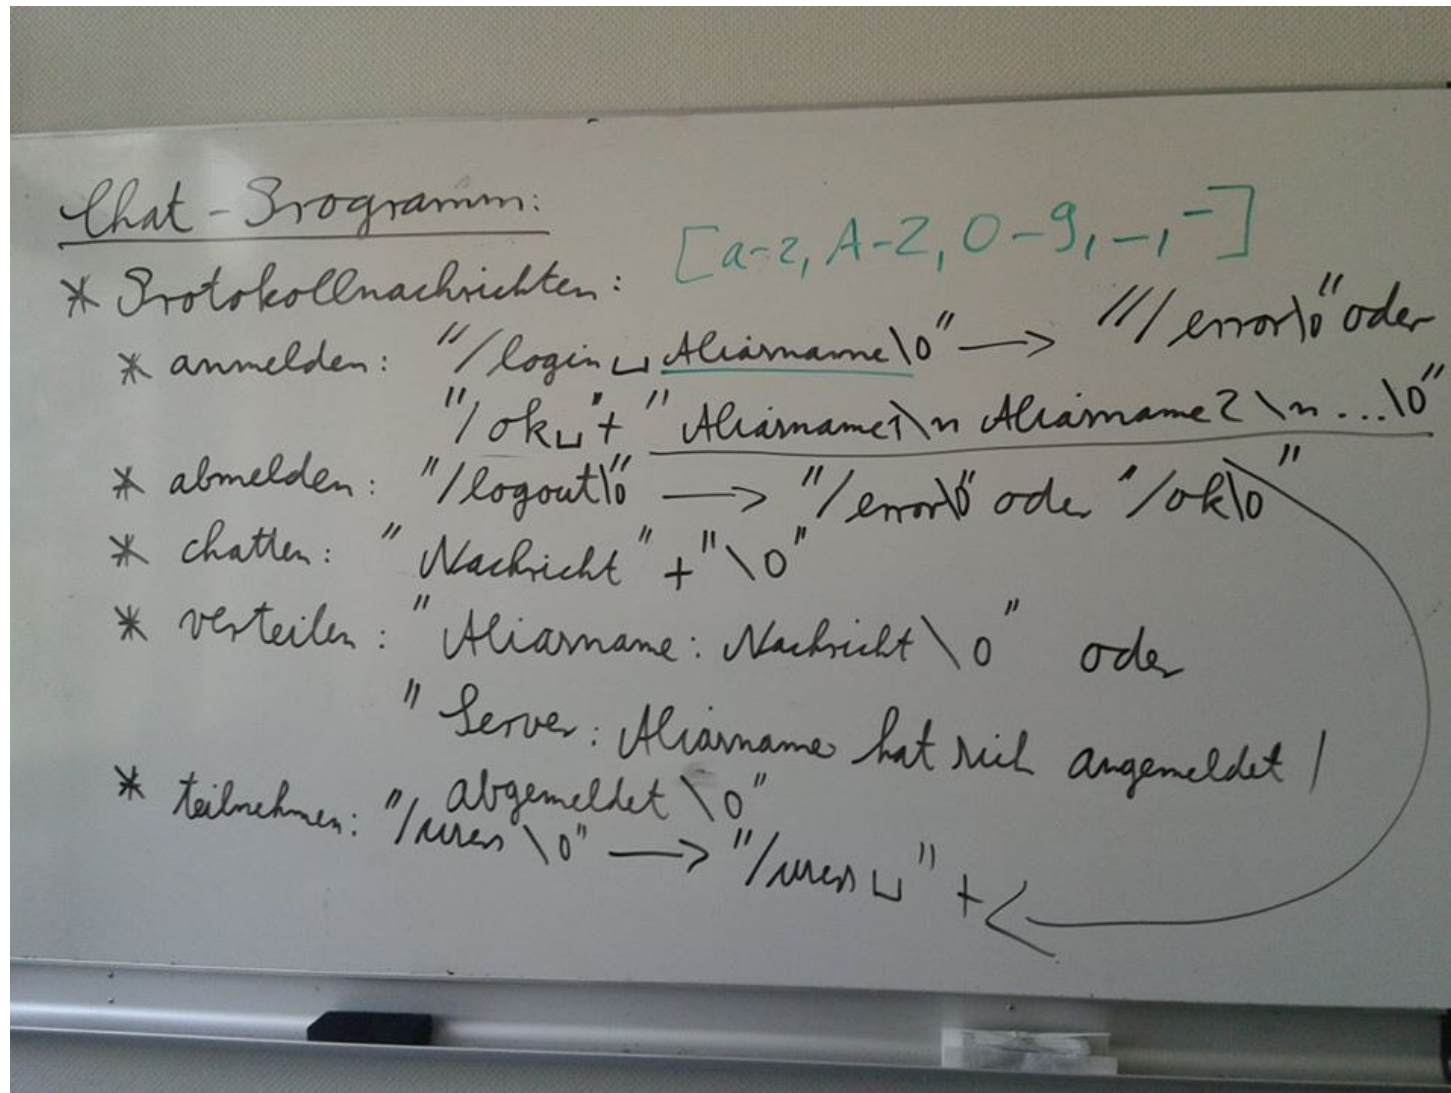 Chat-Programm:
[a-z, A-Z, 0-9, _, -]
* Protokollnachrichten:
* anmelden: "/login␣Aliasname\0" → "/error\0" oder
"/ok␣" + "Aliasname1\n Aliasname2\n...\0"
* abmelden: "/logout\0" → "/error\0" oder "/ok\0"
* chatten: "Nachricht" + "\0"
* verteilen: "Aliasname: Nachricht\0" oder
"Server: Aliasname hat sich angemeldet /
abgemeldet\0"
* teilnehmen: "/users\0" → "/users␣" +